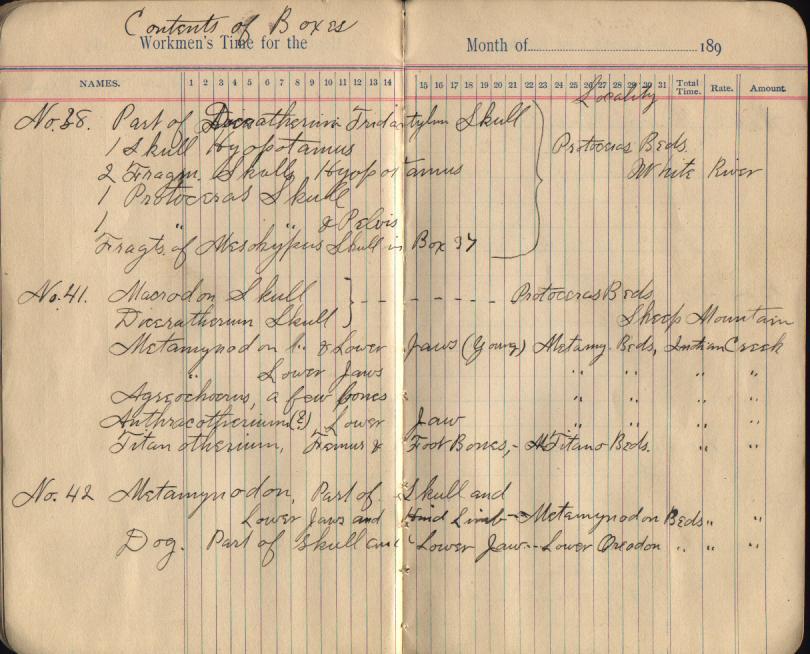 Contents of Boxes
Workmen's Time for the Month of 189
NAMES. 1 2 3 4 5 6 7 8 9 10 11 12 13 14 15 16 17 18 19 20 21 22 23 24 25 26 27 28 29 30 31 Total Time. Rate. Amount.
Locality
No. 38. Part of Diceratherium Tridactylum Skull
1 Skull Hyopotamus Protoceras Beds
2 Fragm. Skulls Hyopotamus White River
1 Protoceras Skull
1 " " & Pelvis
Fragts. of Mesohyppus Skull in Box 37
No. 41. Macrodon Skull - - - - - - Protoceras Beds
Diceratherium Skull Sheep Mountain
Metamynodon " & Lower Jaws (Young) Metamy. Beds, Indian Creek
" Lower Jaws " " " "
Agreochoerus, a few bones " " " "
Anthracotherium(?) Lower Jaw " " " "
Titanotherium, Femur & Foot Bones, - Titano Beds. " "
No. 42 Metamynodon, Part of Skull and
Lower Jaws and Hind Limb - Metamynodon Beds " "
Dog. Part of Skull and Lower Jaw -- Lower Oreodon " " "